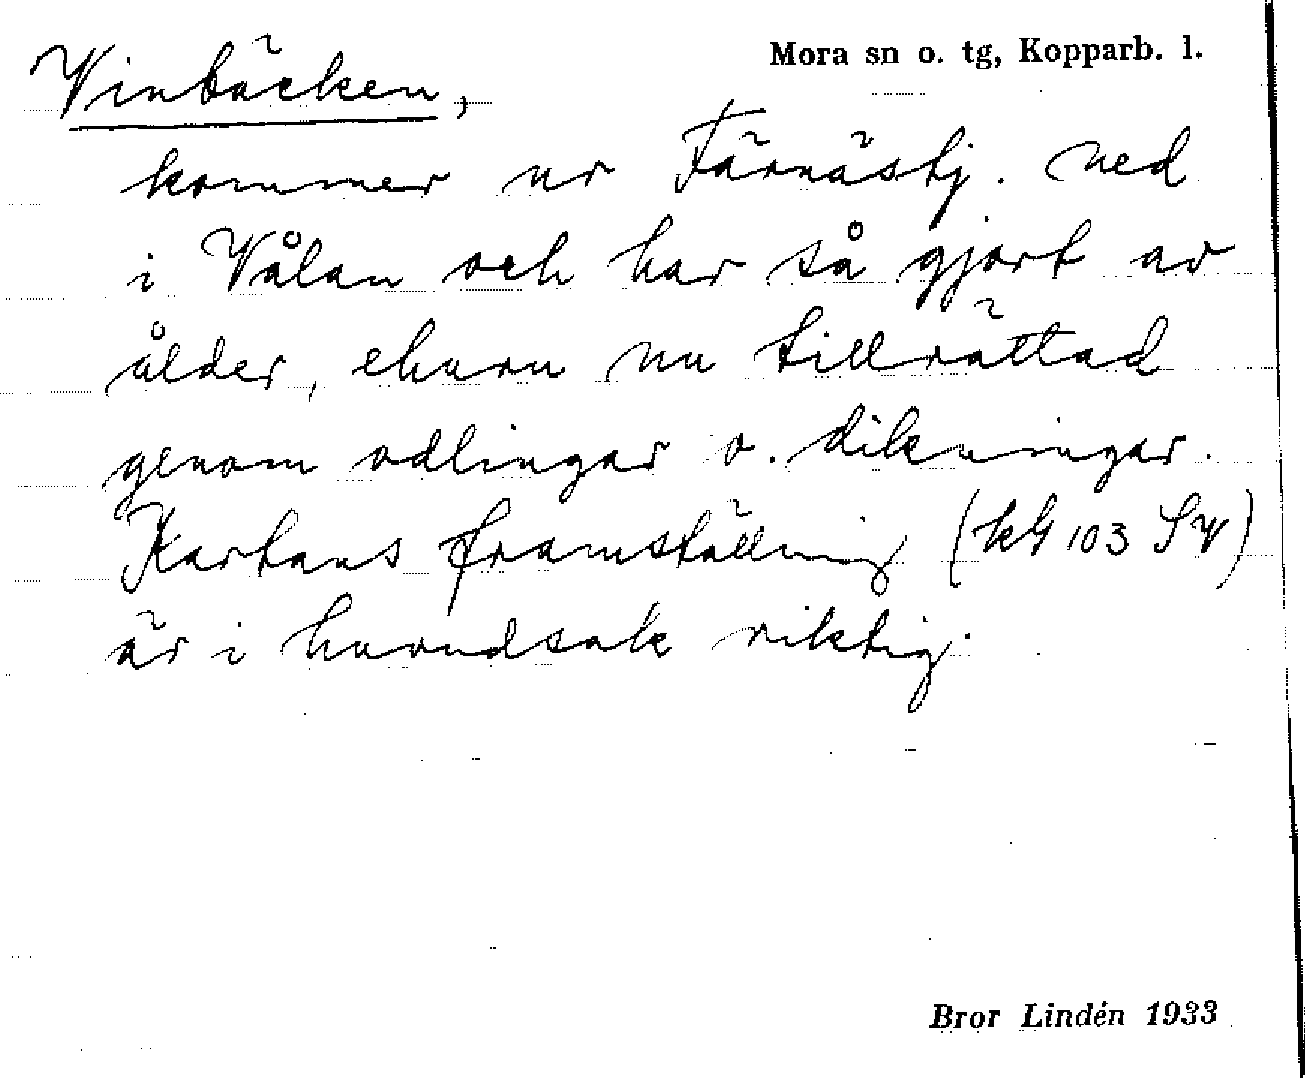 Mora sn o. tg, Kopparb. l.
Vinbäcken,
kommer ur Färnästj. ned
i Vålan och har så gjort av
ålder, ehuru nu tillrättad
genom odlingar o. dikningar.
Kartans framställning (kbl 103 SV)
är i huvudsak riktig.
Bror Lindén 1933